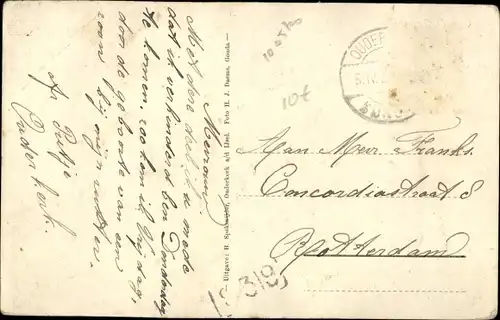 Mevrouw,
Met deze deel ik u mede
dat ik verhinderd ben Donderdag
te komen. zoo kom ik Vrijdag,
door de geboorte van een
zoon bij mijn zuster.
Oudenkerk.
Uitgave: H. Spekhorst, Ouderkerk a/d IJsel. Foto H. J. Dueras, Gouda
10€
OUDER
Aan Mevr. Franks.
Concordiastraat 8
Rotterdam
319